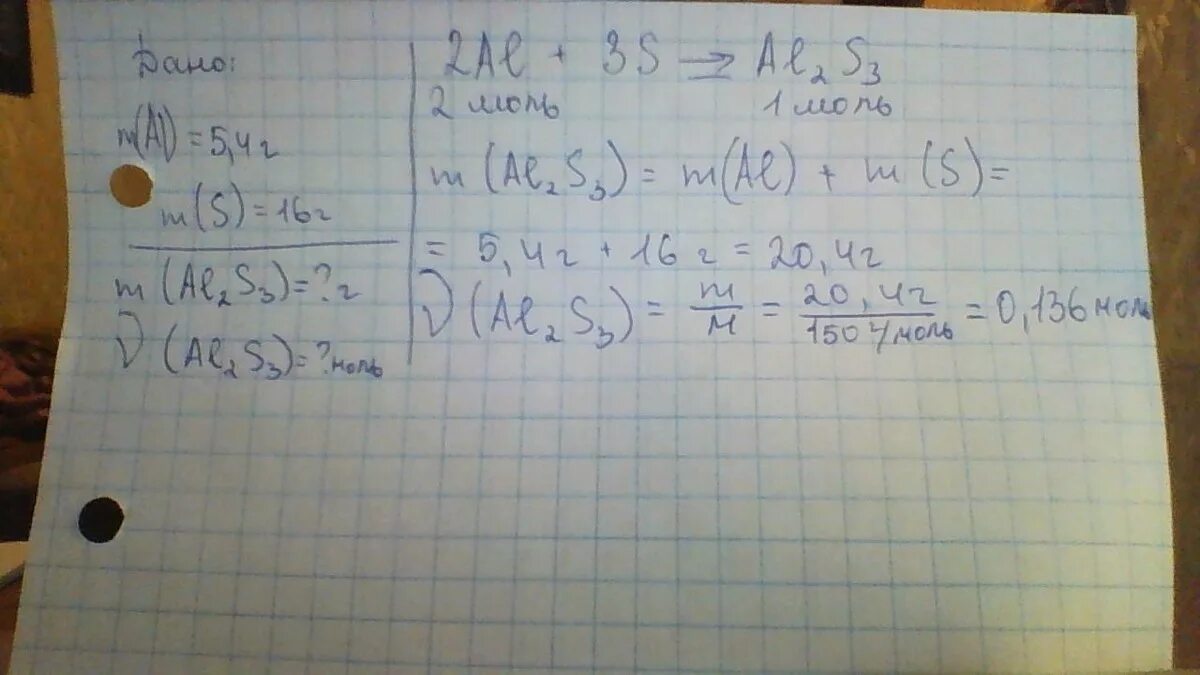 Дано:
m(Al) = 5,4 г
m(S) = 16 г
m (Al₂S₃) = ? г
ν (Al₂S₃) = ? моль
2Al + 3S → Al₂S₃
2 моль 1 моль
m (Al₂S₃) = m(Al) + m (S) =
= 5,4 г + 16 г = 20,4 г
ν (Al₂S₃) = m/M = 20,4 г / 150 г/моль = 0,136 моль